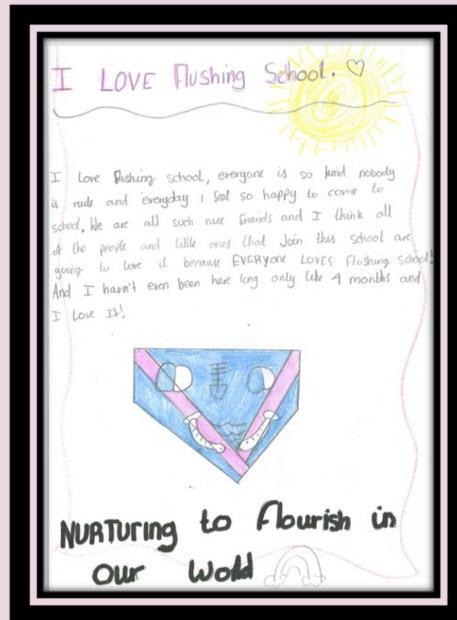 I LOVE Flushing School.
I Love flushing school, everyone is so kind nobody
is rude and everyday I feel so happy to come to
school, We are all such nice friends and I think all
of the people and little ones that Join this school are
going to love it because EVERYONE LOVES flushing school!
And I havn't even been here long only like 4 months and
I Love It!
NURTURing to flourish in
our World